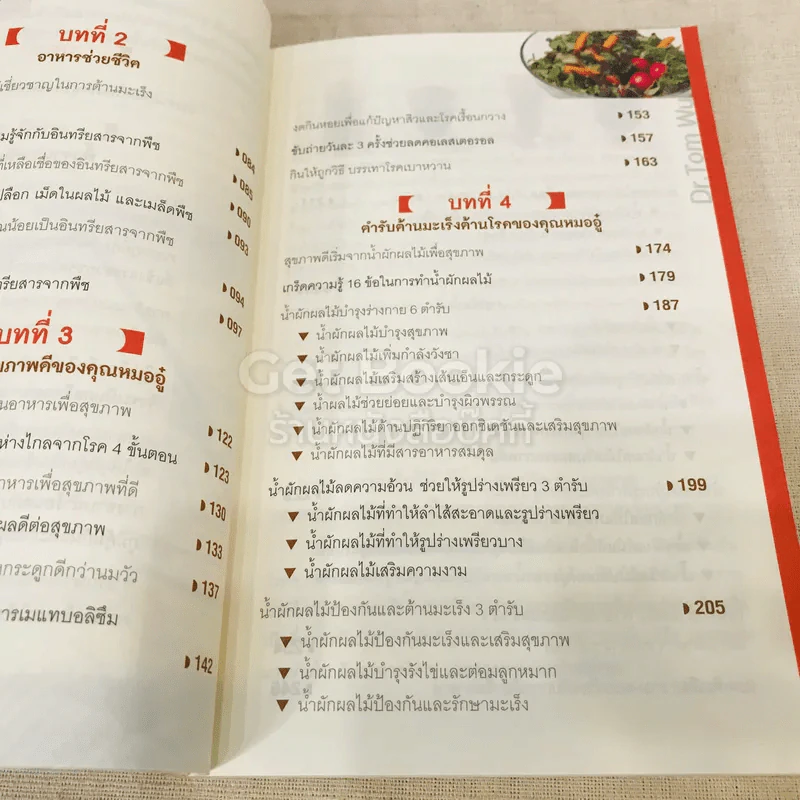 บทที่ 2
อาหารช่วยชีวิต
เชี่ยวชาญในการต้านมะเร็ง
รู้จักกับอินทรียสารจากพืช
084
ที่เหลือเชื่อของอินทรียสารจากพืช
085
เปลือก เม็ดในผลไม้ และเมล็ดพืช
090
น้อยเป็นอินทรียสารจากพืช
093
ทรียสารจากพืช
094
097
บทที่ 3
ภาพดีของคุณหมออู๋
อาหารเพื่อสุขภาพ
122
ห่างไกลจากโรค 4 ขั้นตอน
123
อาหารเพื่อสุขภาพที่ดี
130
ผลดีต่อสุขภาพ
133
กระดูกดีกว่านมวัว
137
การเมแทบอลิซึม
142
งดกินหอยเพื่อแก้ปัญหาสิวและโรคเรื้อนกวาง 153
ขับถ่ายวันละ 3 ครั้งช่วยลดคอเลสเตอรอล 157
กินให้ถูกวิธี บรรเทาโรคเบาหวาน 163
บทที่ 4
ตำรับต้านมะเร็งต้านโรคของคุณหมออู๋
สุขภาพดีเริ่มจากน้ำผักผลไม้เพื่อสุขภาพ 174
เกร็ดความรู้ 16 ข้อในการทำน้ำผักผลไม้ 179
น้ำผักผลไม้บำรุงร่างกาย 6 ตำรับ 187
▼ น้ำผักผลไม้บำรุงสุขภาพ
▼ น้ำผักผลไม้เพิ่มกำลังวังชา
▼ น้ำผักผลไม้เสริมสร้างเส้นเอ็นและกระดูก
▼ น้ำผักผลไม้ช่วยย่อยและบำรุงผิวพรรณ
▼ น้ำผักผลไม้ต้านปฏิกิริยาออกซิเดชันและเสริมสุขภาพ
▼ น้ำผักผลไม้ที่มีสารอาหารสมดุล
น้ำผักผลไม้ลดความอ้วน ช่วยให้รูปร่างเพรียว 3 ตำรับ 199
▼ น้ำผักผลไม้ที่ทำให้ลำไส้สะอาดและรูปร่างเพรียว
▼ น้ำผักผลไม้ที่ทำให้รูปร่างเพรียวบาง
▼ น้ำผักผลไม้เสริมความงาม
น้ำผักผลไม้ป้องกันและต้านมะเร็ง 3 ตำรับ 205
▼ น้ำผักผลไม้ป้องกันมะเร็งและเสริมสุขภาพ
▼ น้ำผักผลไม้บำรุงรังไข่และต่อมลูกหมาก
▼ น้ำผักผลไม้ป้องกันและรักษามะเร็ง
Dr.Tom Wu
Get Bookie
ร้านหนังสือบุ๊คกี้